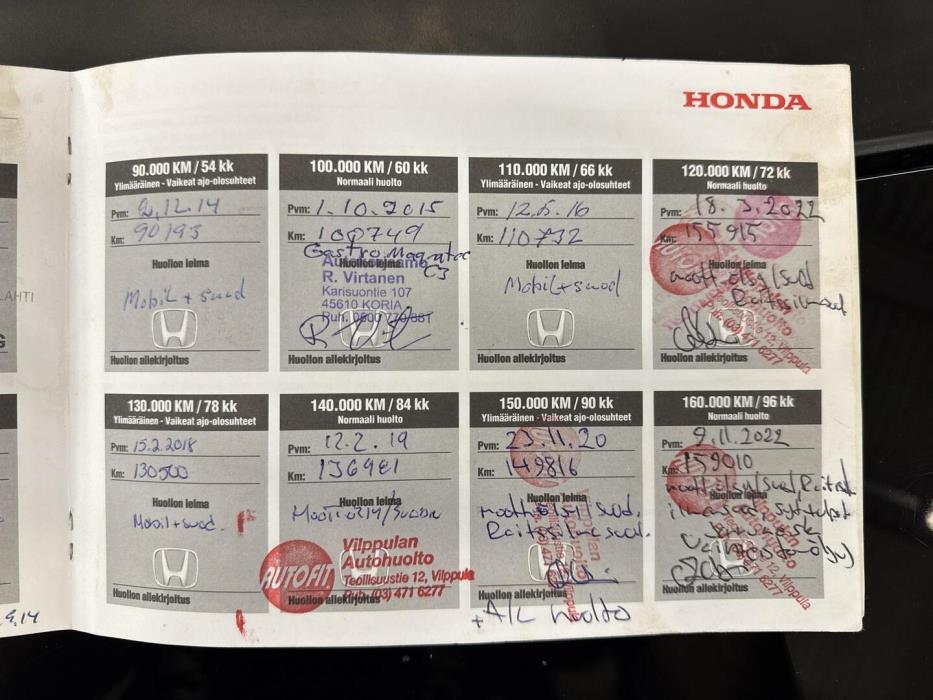 HONDA
90.000 KM / 54 kk
Ylimääräinen - Vaikeat ajo-olosuhteet
Pvm: 2.12.14
Km: 90193
Huollon leima
Mobil + suod
Huollon allekirjoitus
100.000 KM / 60 kk
Normaali huolto
Pvm: 1.10.2015
Km: 100749
Castrol Magnatec
C3
Huollon leima
R. Virtanen
Karisuontie 107
45610 KORIA
Puh. 0800 770 881
Huollon allekirjoitus
110.000 KM / 66 kk
Ylimääräinen - Vaikeat ajo-olosuhteet
Pvm: 12.5.16
Km: 110732
Huollon leima
Mobil + suod
Huollon allekirjoitus
120.000 KM / 72 kk
Normaali huolto
Pvm: 18.3.2022
Km: 155915
Huollon leima
moott.öljy/suod
Raitisilmasuod
12, Vilppula
(03) 471 6277
Huollon allekirjoitus
130.000 KM / 78 kk
Ylimääräinen - Vaikeat ajo-olosuhteet
Pvm: 15.2.2018
Km: 130500
Huollon leima
Mobil + suod.
Huollon allekirjoitus
140.000 KM / 84 kk
Normaali huolto
Pvm: 12.2.19
Km: 136981
Huollon leima
AUTOFIT
Vilppulan
Autohuolto
Teollisuustie 12, Vilppula
Puh. (03) 471 6277
Huollon allekirjoitus
150.000 KM / 90 kk
Ylimääräinen - Vaikeat ajo-olosuhteet
Pvm: 23.11.20
Km: 149816
Huollon leima
moottoriöljy/suod.
Raitisilmasuod.
Huollon allekirjoitus
+ A/C huolto
160.000 KM / 96 kk
Normaali huolto
Pvm: 9.11.2022
Km: 159010
Huollon leima
moott.öljy/suod/Raitis
ilmasuod, syt.tulpat
Huollon allekirjoitus
LAHTI
9.14